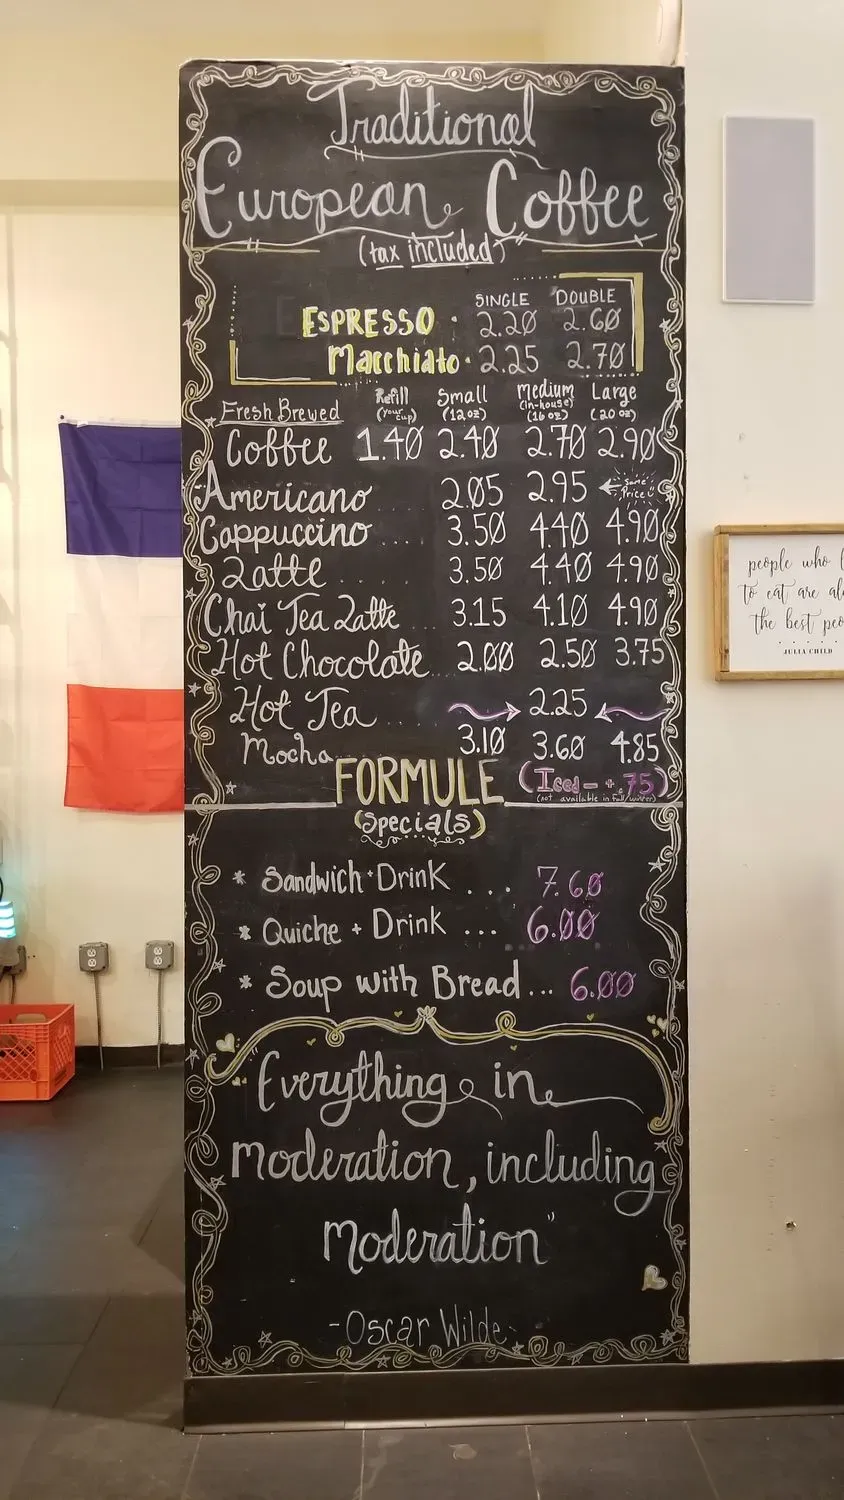 Traditional
European Coffee
(tax included)
SINGLE DOUBLE
ESPRESSO . 2.20 2.60
Macchiato . 2.25 2.70
Refill Small Medium Large
(your cup) (12 oz) (in-house) (16 oz) (20 oz)
Fresh Brewed
Coffee 1.40 2.40 2.70 2.90
Americano .... 2.05 2.95 ← Same Price
Cappuccino .... 3.50 4.40 4.90
Latte ..... 3.50 4.40 4.90
Chai Tea Latte ... 3.15 4.10 4.90
Hot Chocolate .. 2.00 2.50 3.75
Hot Tea .... → 2.25 ←
Mocha.... 3.10 3.60 4.85
FORMULE (Iced - + .75)
(not available in fall/winter)
(Specials)
* Sandwich + Drink ... 7.60
* Quiche + Drink ... 6.00
* Soup with Bread... 6.00
"Everything in
moderation, including
moderation"
-Oscar Wilde-
people who
to eat are
the best
JULIA CHILD